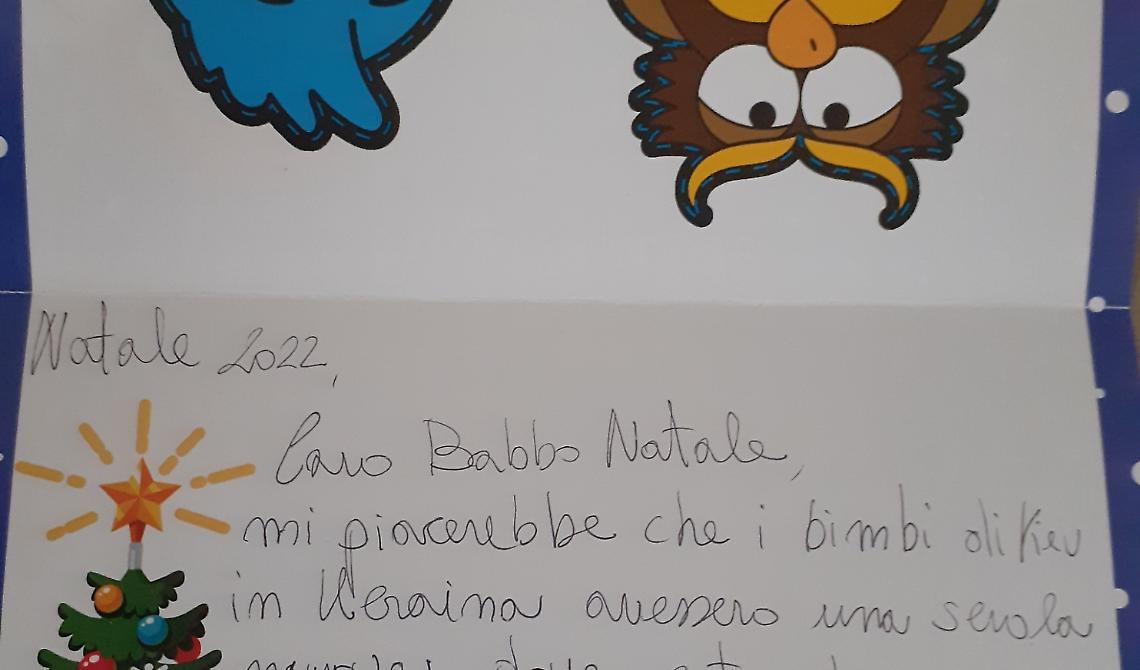 Natale 2022,
Caro Babbo Natale,
mi piacerebbe che i bimbi di Kiev
in Ucraina avessero una scuola